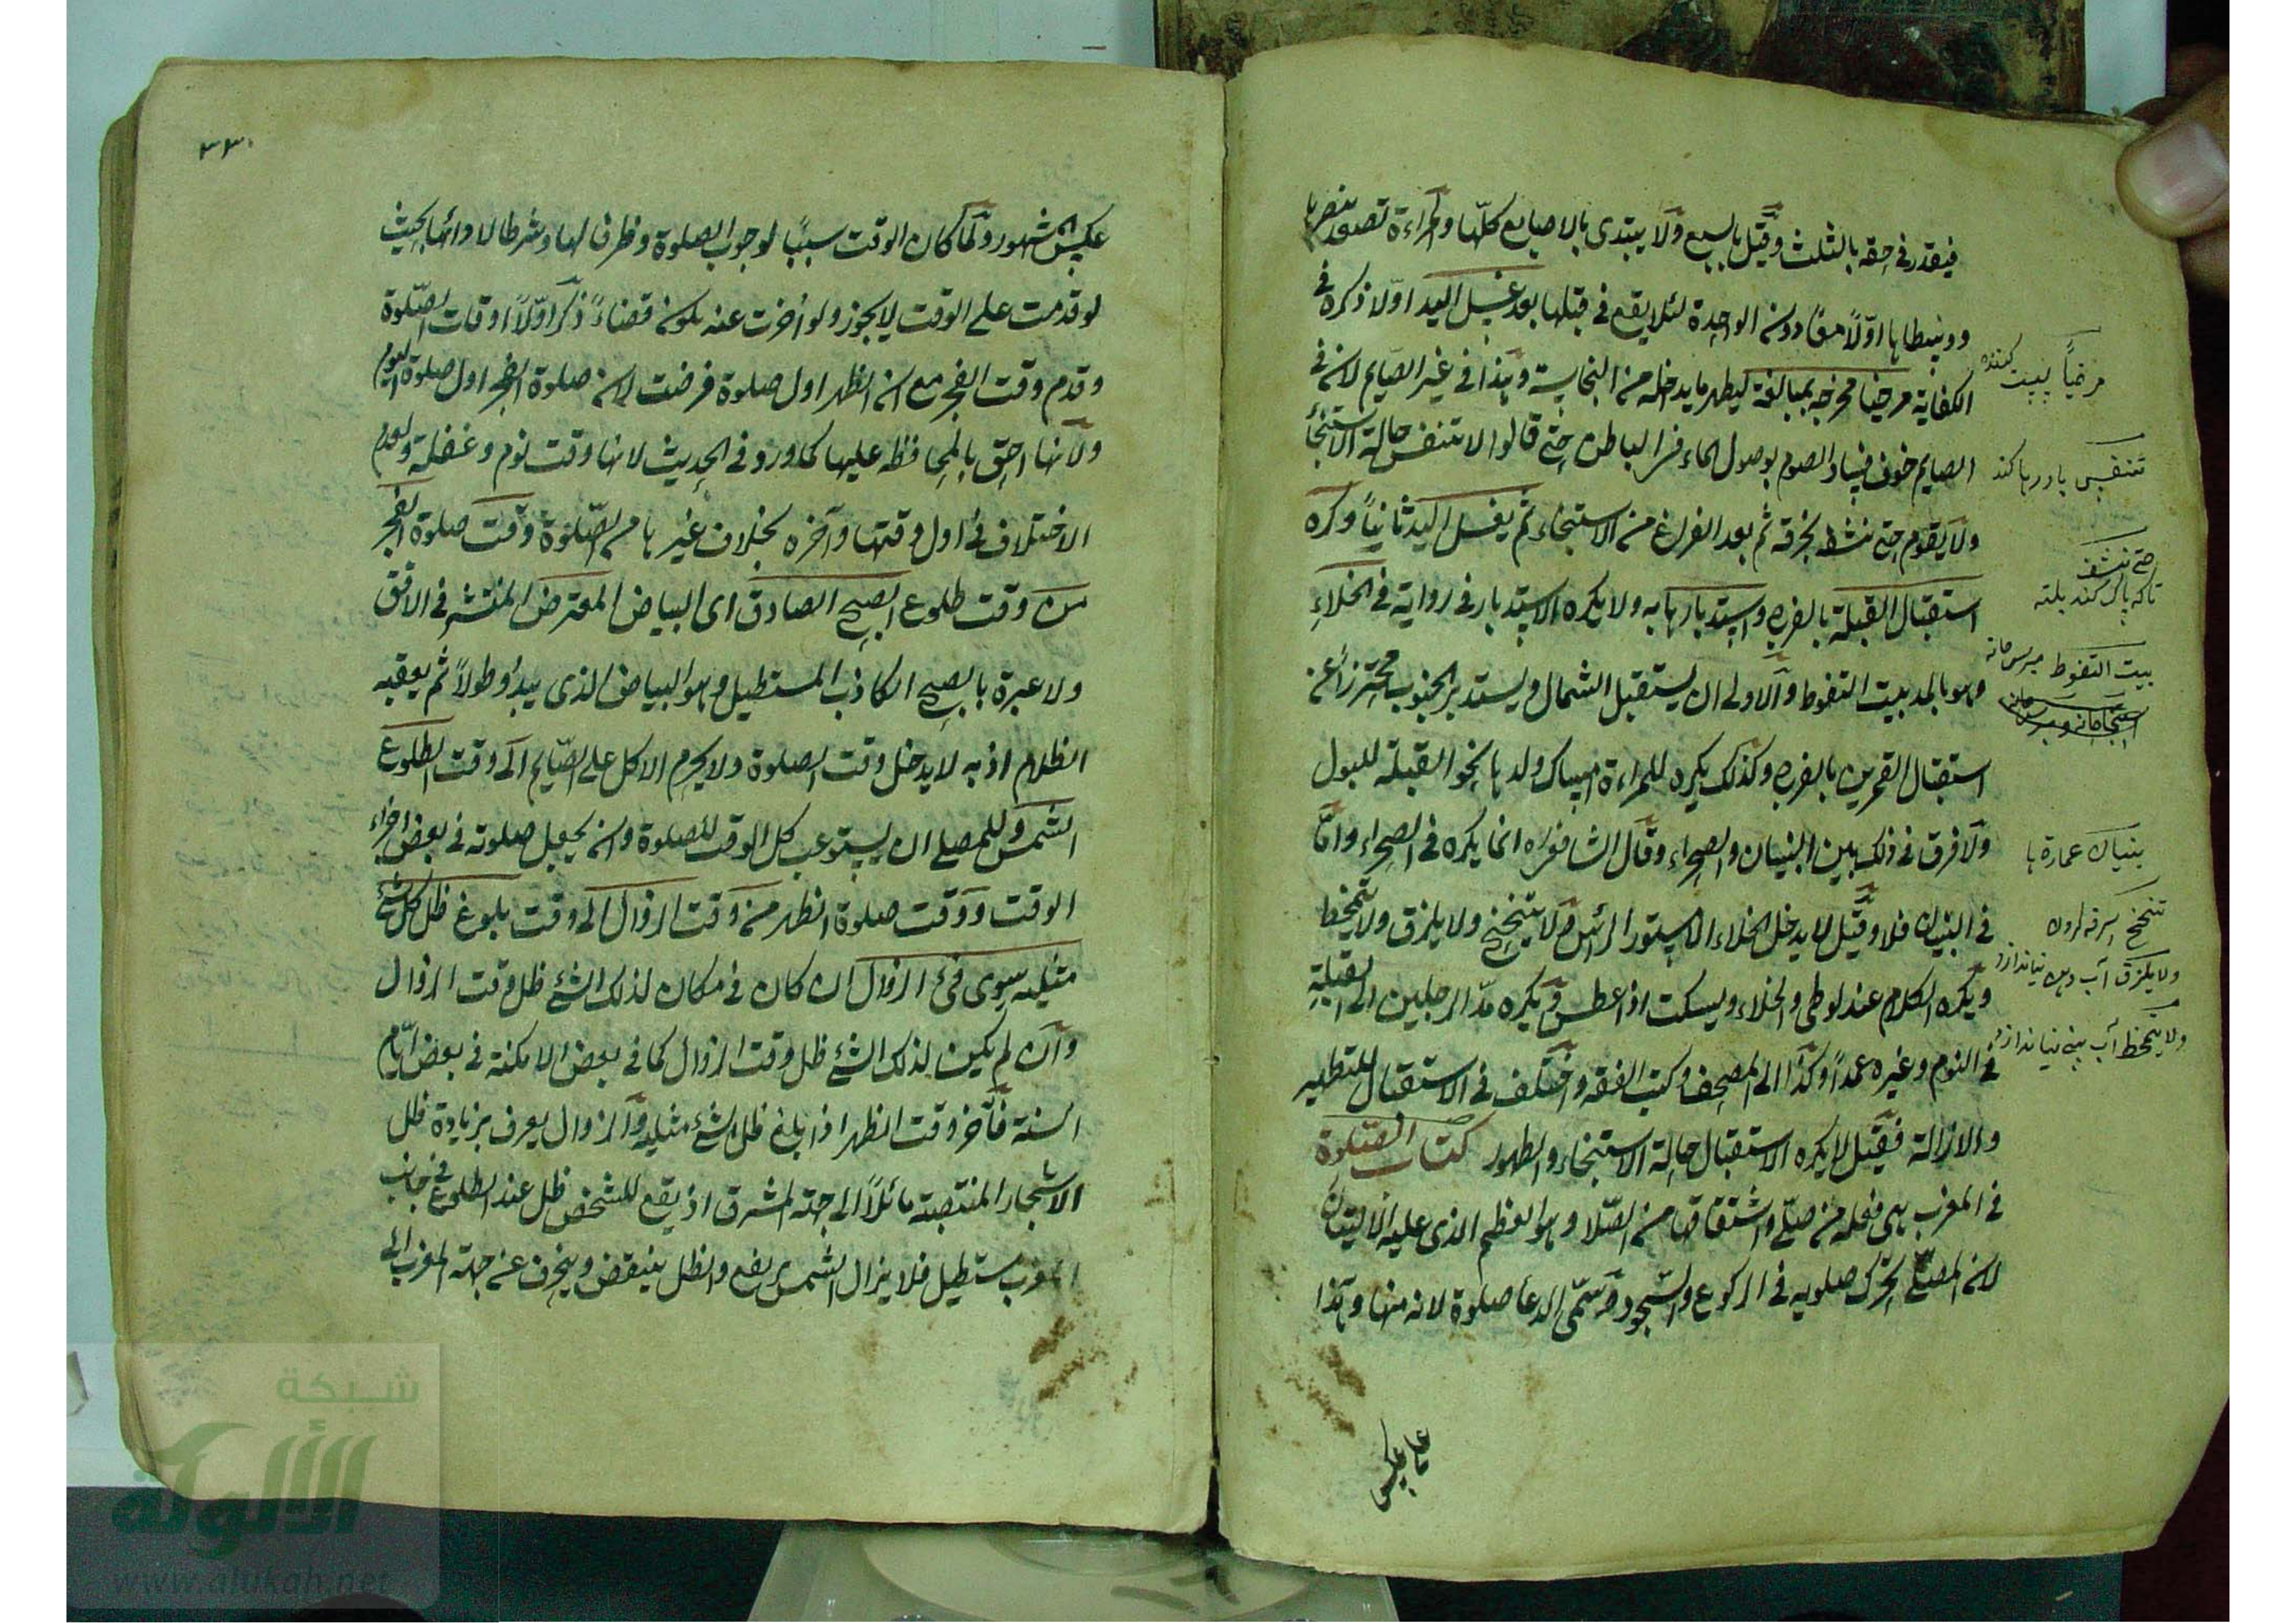 فيقدر في حقه بالثلث وقيل بالسبع ولا يبتدى بالاصابع كلها والمراءة تصعد بنصرها
ووسطاها اولاً معًا دون الواحدة لئلا يقع في قبلها بعد غسل اليد اولا ذكره في
الكفاية مرخيا مخرجه بمبالغة ليطهر ما يدخله من النجاسة وهذا في غير الصايم لانه في
الصايم خوف فساد الصوم بوصول الماء الباطن حتى قالوا لا يتنفس حالة الاستنجأ
ولا يقوم حتى ينشط بخرقة ثم بعد الفراغ من الاستنجاء ثم يغسل اليد ثانياً وكره
استقبال القبلة بالفرج واستدبارها به ولا يكره الاستدبار في رواية في الخلاء
وهو بالمد بيت التغوط والاولى ان يستقبل الشمال ويستدبر الجنوب محترزاً عن
استقبال القمرين بالفرج وكذلك يكره للمراءة امساك ولدها نحو القبلة للبول
ولا فرق في ذلك بين البنيان والصحراء وقال الشافعى ره انما يكره في الصحراء واما
في البنيان فلا وقيل لا يدخل الخلاء الا مستور الرأس ولا يتنحنح ولا يلزق ولا يتمخط
ويكره الكلام عند لوطى والخلاء ويسكت اذا عطس ويكره مد الرجلين الى القبلة
في النوم وغيره عمداً وكذا الى المصحف وكتب الفقه واختلف في الاستقبال للتطهير
والازالة فقيل لا يكره الاستقبال حالة الاستنجاء والطهور كتاب الصلوة
في المغرب هى فعلة من صلى واشتقاقها من الصلا وهو العظم الذى عليه الاليتان
لان المصلى يحرك صلويه في الركوع والسجود وسمى الدعا صلوة لانه منها وهذا
مرخياً
تنفس باد رها كند
حتى تنشف
تاكه پاك كند بلته
بيت التغوط
بنيان عمارة ها
تنحنح سرفه كردن
ولا يلزق آب دهن نياندازد
ولا يتمخط آب بينى نياندازد
عكس
٣٣
عكس المشهور ولما كان الوقت سببًا لوجوب الصلوة وظرفا لها وشرطا لادائها بحيث
لو قدمت على الوقت لا يجوز ولو أخرت عنه يكون قضاءً ذكر اوّلاً اوقات الصلوة
وقدم وقت الفجر مع ان الظهر اول صلوة فرضت لان صلوة الفجر اول صلوة اليوم
ولانها احق بالمحافظة عليها كما ورد في الحديث لانها وقت نوم وغفلة ولعدم
الاختلاف في اول وقتها وآخره بخلاف غيرها من الصلوة وقت صلوة الفجر
من وقت طلوع الصبح الصادق اى البياض المعترض المنتشر في الافق
ولا عبرة بالصبح الكاذب المستطيل وهو البياض الذى يبدؤ طولاً ثم يعقبه
الظلام اذ به لا يدخل وقت الصلوة ولا يحرم الاكل على الصايم الى وقت الطلوع
الشمس وللمصلى ان يستوعب كل الوقت للصلوة وان يجعل صلوته في بعض اجزاء
الوقت ووقت صلوة الظهر من وقت الزوال الى وقت بلوغ ظل كل شئ
مثليه سوى فئ الزوال ان كان في مكان لذلك الشئ ظل وقت الزوال
وان لم يكن لذلك الشئ ظل وقت الزوال كما في بعض الامكنة في بعض ايام
السنة فآخر وقت الظهر اذا بلغ ظل الشئ مثليه والزوال يعرف بزيادة ظل
الاشجار المنتصبة مائلاً الى جهة المشرق اذ يقع للشخص ظل عند الطلوع في جانب
المغرب مستطيل فلا يزال الشمس يرتفع والظل ينتقض وينحرف عن جهة المغرب الى
شبكة
الألوكة
www.alukah.net